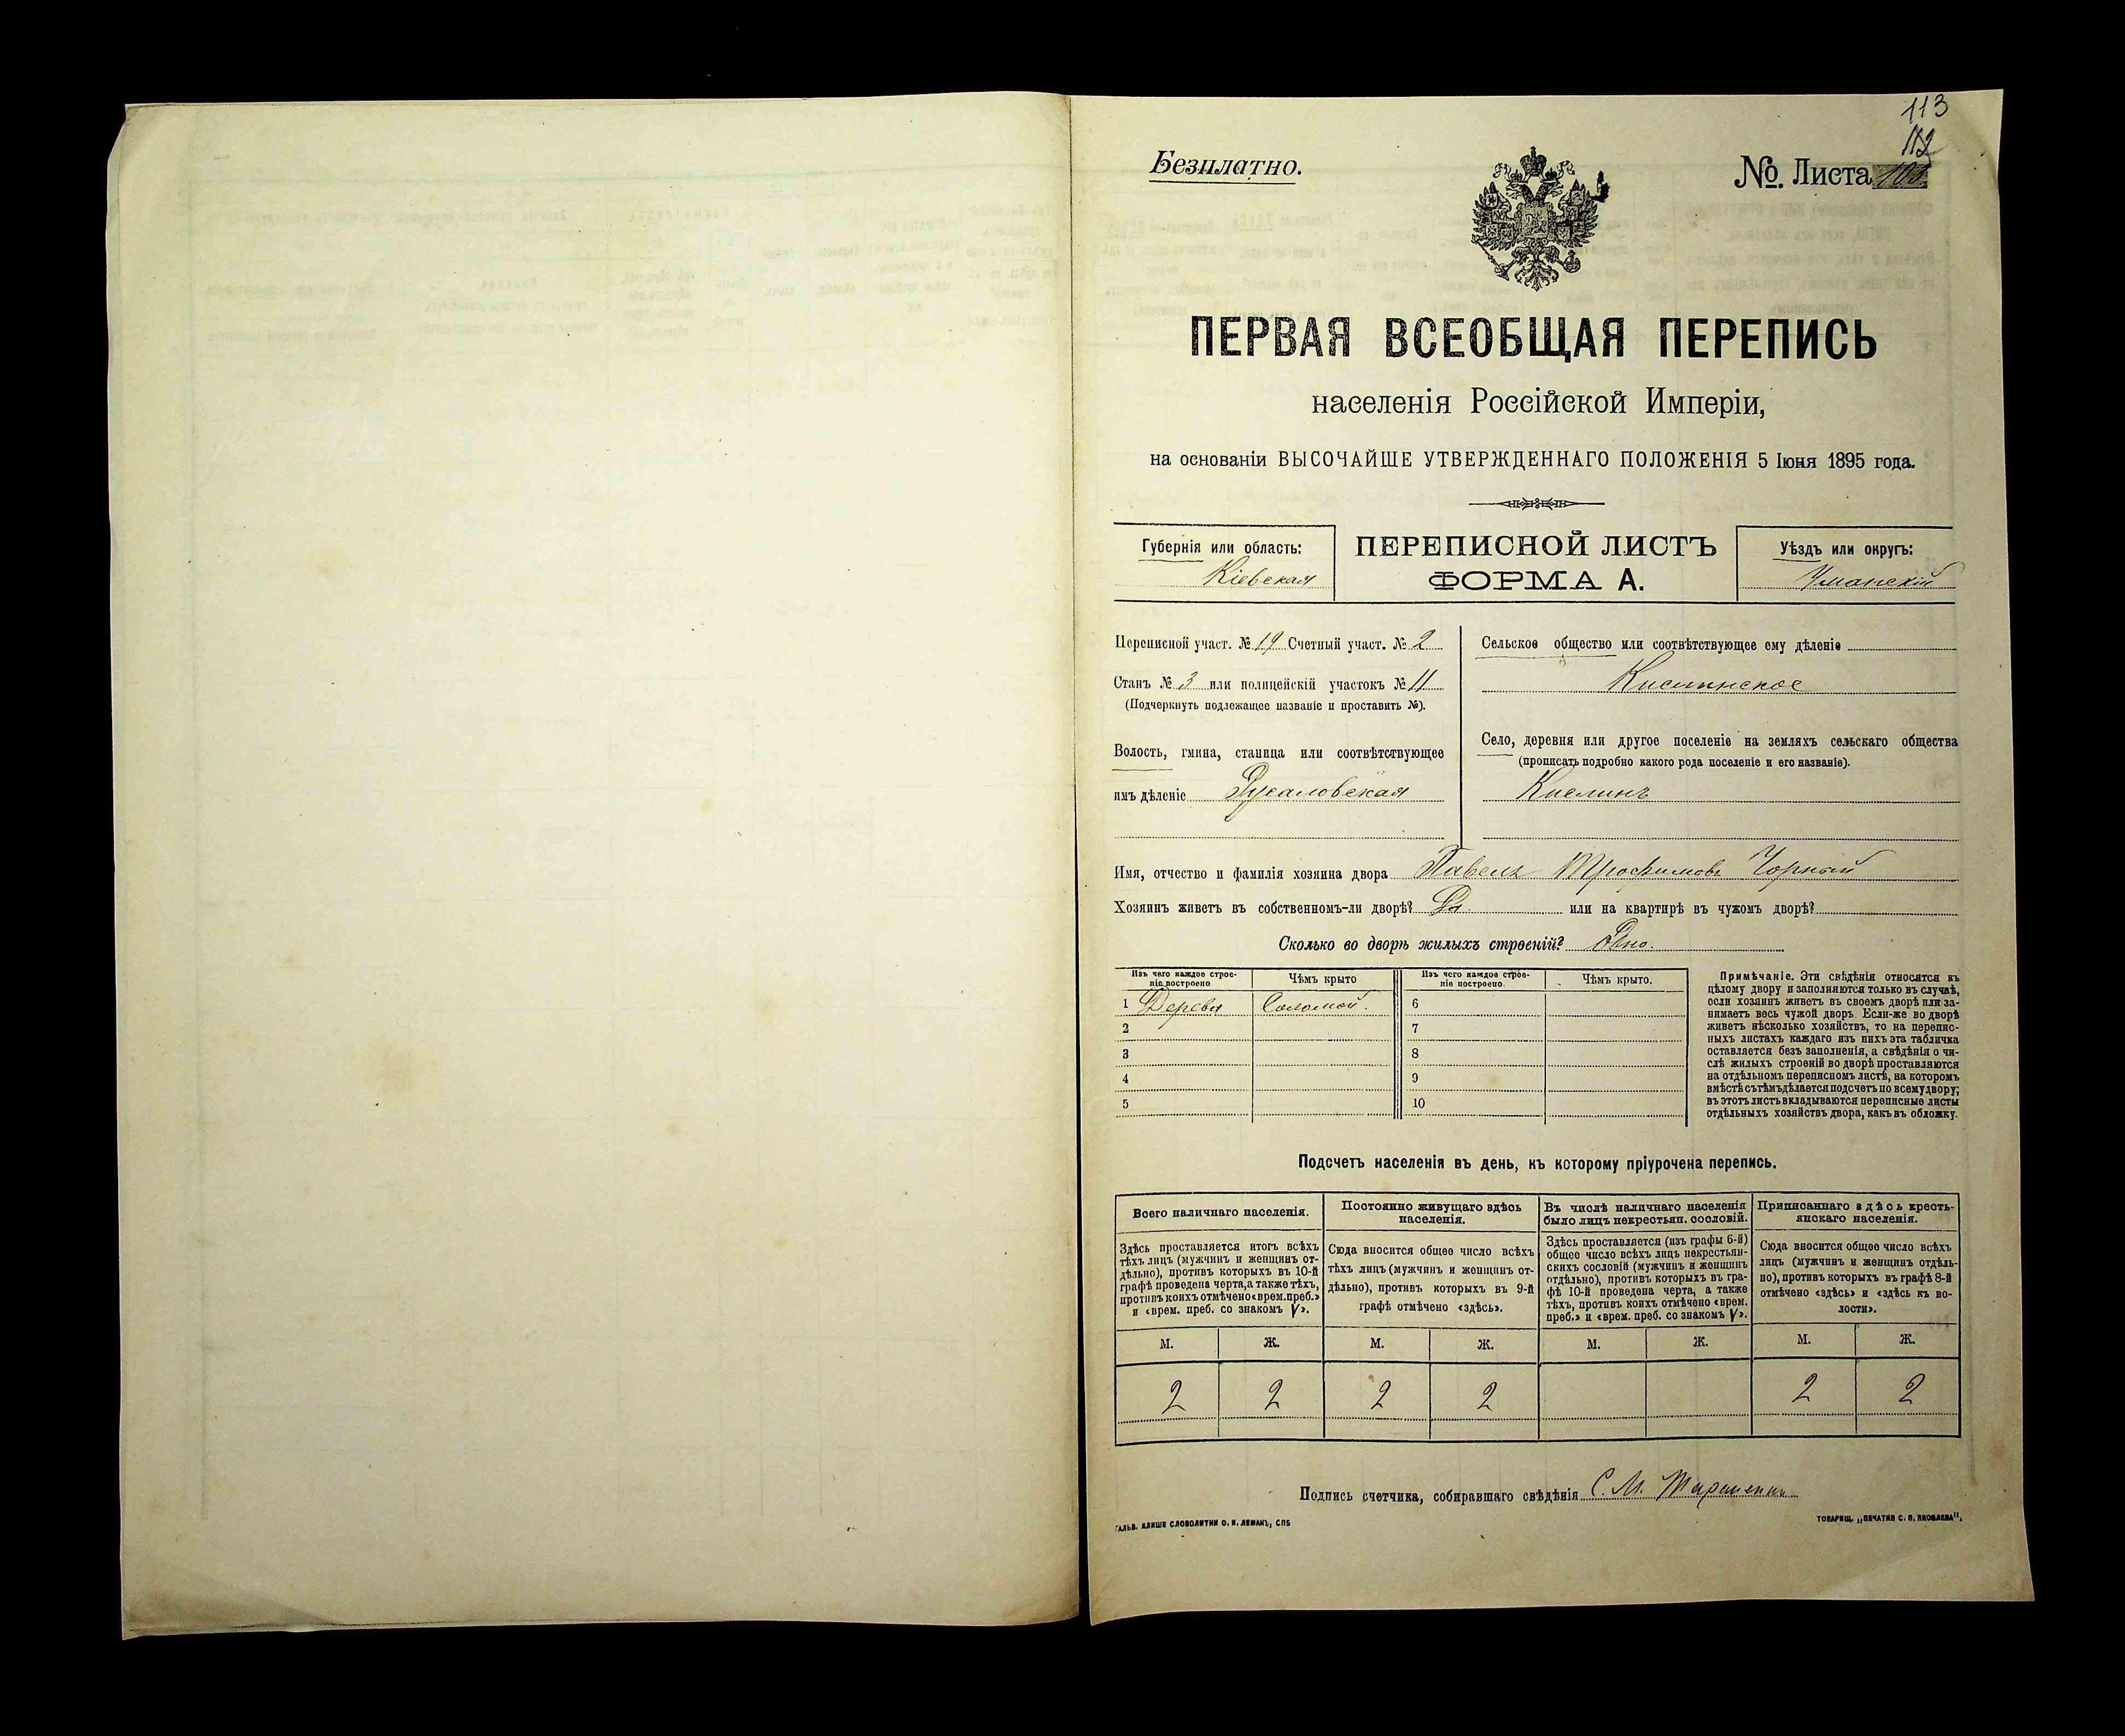 113
112
Безплатно.
№. Листа 103.
ПЕРВАЯ ВСЕОБЩАЯ ПЕРЕПИСЬ
населенія Россійской Имперіи,
на основаніи ВЫСОЧАЙШЕ УТВЕРЖДЕННАГО ПОЛОЖЕНІЯ 5 Іюня 1895 года.
Губернія или область:
Кіевская
ПЕРЕПИСНОЙ ЛИСТЪ
ФОРМА А.
Уѣздъ или округъ:
Уманскій
Переписной участ. № 19 Счетный участ. № 2
Станъ № 3 или полицейскій участокъ № 11
(Подчеркнуть подлежащее названіе и проставить №).
Волость, гмина, станица или соотвѣтствующее
имъ дѣленіе Русаловская
Сельское общество или соотвѣтствующее ему дѣленіе
Кислинское
Село, деревня или другое поселеніе на земляхъ сельскаго общества
(прописать подробно какого рода поселеніе и его названіе).
Кислинъ
Имя, отчество и фамилія хозяина двора Павелъ Трофимовъ Чорный
Хозяинъ живетъ въ собственномъ-ли дворѣ? Да. или на квартирѣ въ чужомъ дворѣ?
Сколько во дворѣ жилыхъ строеній? Одно.
Изъ чего каждое строе-
ніе построено
Чѣмъ крыто
Изъ чего каждое строе-
ніе построено.
Чѣмъ крыто.
1 Дерева Соломой. 6
2 7
3 8
4 9
5 10
Примѣчаніе. Эти свѣдѣнія относятся къ
цѣлому двору и заполняются только въ случаѣ,
если хозяинъ живетъ въ своемъ дворѣ или за-
нимаетъ весь чужой дворъ. Если-же во дворѣ
живетъ нѣсколько хозяйствъ, то на перепис-
ныхъ листахъ каждаго изъ нихъ эта табличка
оставляется безъ заполненія, а свѣдѣнія о чи-
слѣ жилыхъ строеній во дворѣ проставляются
на отдѣльномъ переписномъ листѣ, на которомъ
вмѣстѣ съ тѣмъ дѣлается подсчетъ по всему двору;
въ этотъ листъ вкладываются переписные листы
отдѣльныхъ хозяйствъ двора, какъ въ обложку.
Подсчетъ населенія въ день, къ которому пріурочена перепись.
Всего наличнаго населенія.
Здѣсь проставляется итогъ всѣхъ
тѣхъ лицъ (мужчинъ и женщинъ от-
дѣльно), противъ которыхъ въ 10-й
графѣ проведена черта, а также тѣхъ,
противъ коихъ отмѣчено «врем. преб.»
и «врем. преб. со знакомъ V».
Постоянно живущаго здѣсь
населенія.
Сюда вносится общее число всѣхъ
тѣхъ лицъ (мужчинъ и женщинъ от-
дѣльно), противъ которыхъ въ 9-й
графѣ отмѣчено «здѣсь».
Въ числѣ наличнаго населенія
было лицъ некрестьян. сословій.
Здѣсь проставляется (изъ графы 6-й)
общее число всѣхъ лицъ некрестьян-
скихъ сословій (мужчинъ и женщинъ
отдѣльно), противъ которыхъ въ гра-
фѣ 10-й проведена черта, а также
тѣхъ, противъ коихъ отмѣчено «врем.
преб.» и «врем. преб. со знакомъ V».
Приписаннаго здѣсь кресть-
янскаго населенія.
Сюда вносится общее число всѣхъ
лицъ (мужчинъ и женщинъ отдѣль-
но), противъ которыхъ въ графѣ 8-й
отмѣчено «здѣсь» и «здѣсь къ во-
лости».
М. Ж. М. Ж. М. Ж. М. Ж.
2 2 2 2 2 2
Подпись счетчика, собиравшаго свѣдѣнія С. М.
ГАЛЬВ. КЛИШЕ СЛОВОЛИТНИ О. И. ЛЕМАНЪ, СПБ
ТОВАРИЩ. „ПЕЧАТНЯ С. П. ЯКОВЛЕВА“.